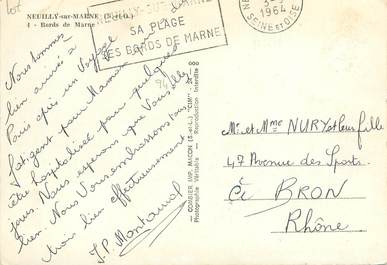 NEUILLY-sur-MARNE (S.-&-O.)
4 - Bords de Marne
NEUILLY-SUR-MARNE
SA PLAGE
SES BORDS DE MARNE
1964
SEINE-ET-OISE
Nous sommes
bien arrivés à
Paris après un Voyage
fatigant pour Maman
être hospitalisée pour quelques
jours. Nous espérons que Vous allez
bien. Nous Vous embrassons tous
bien affectueusement
J.P. Montauriol
COMBIER IMP. MACON (S.-et-L.) "CIM"
Photographie Véritable - Reproduction Interdite
Mr. et Mme NURY et leur fille
47 Avenue des Sports
BRON
Rhône